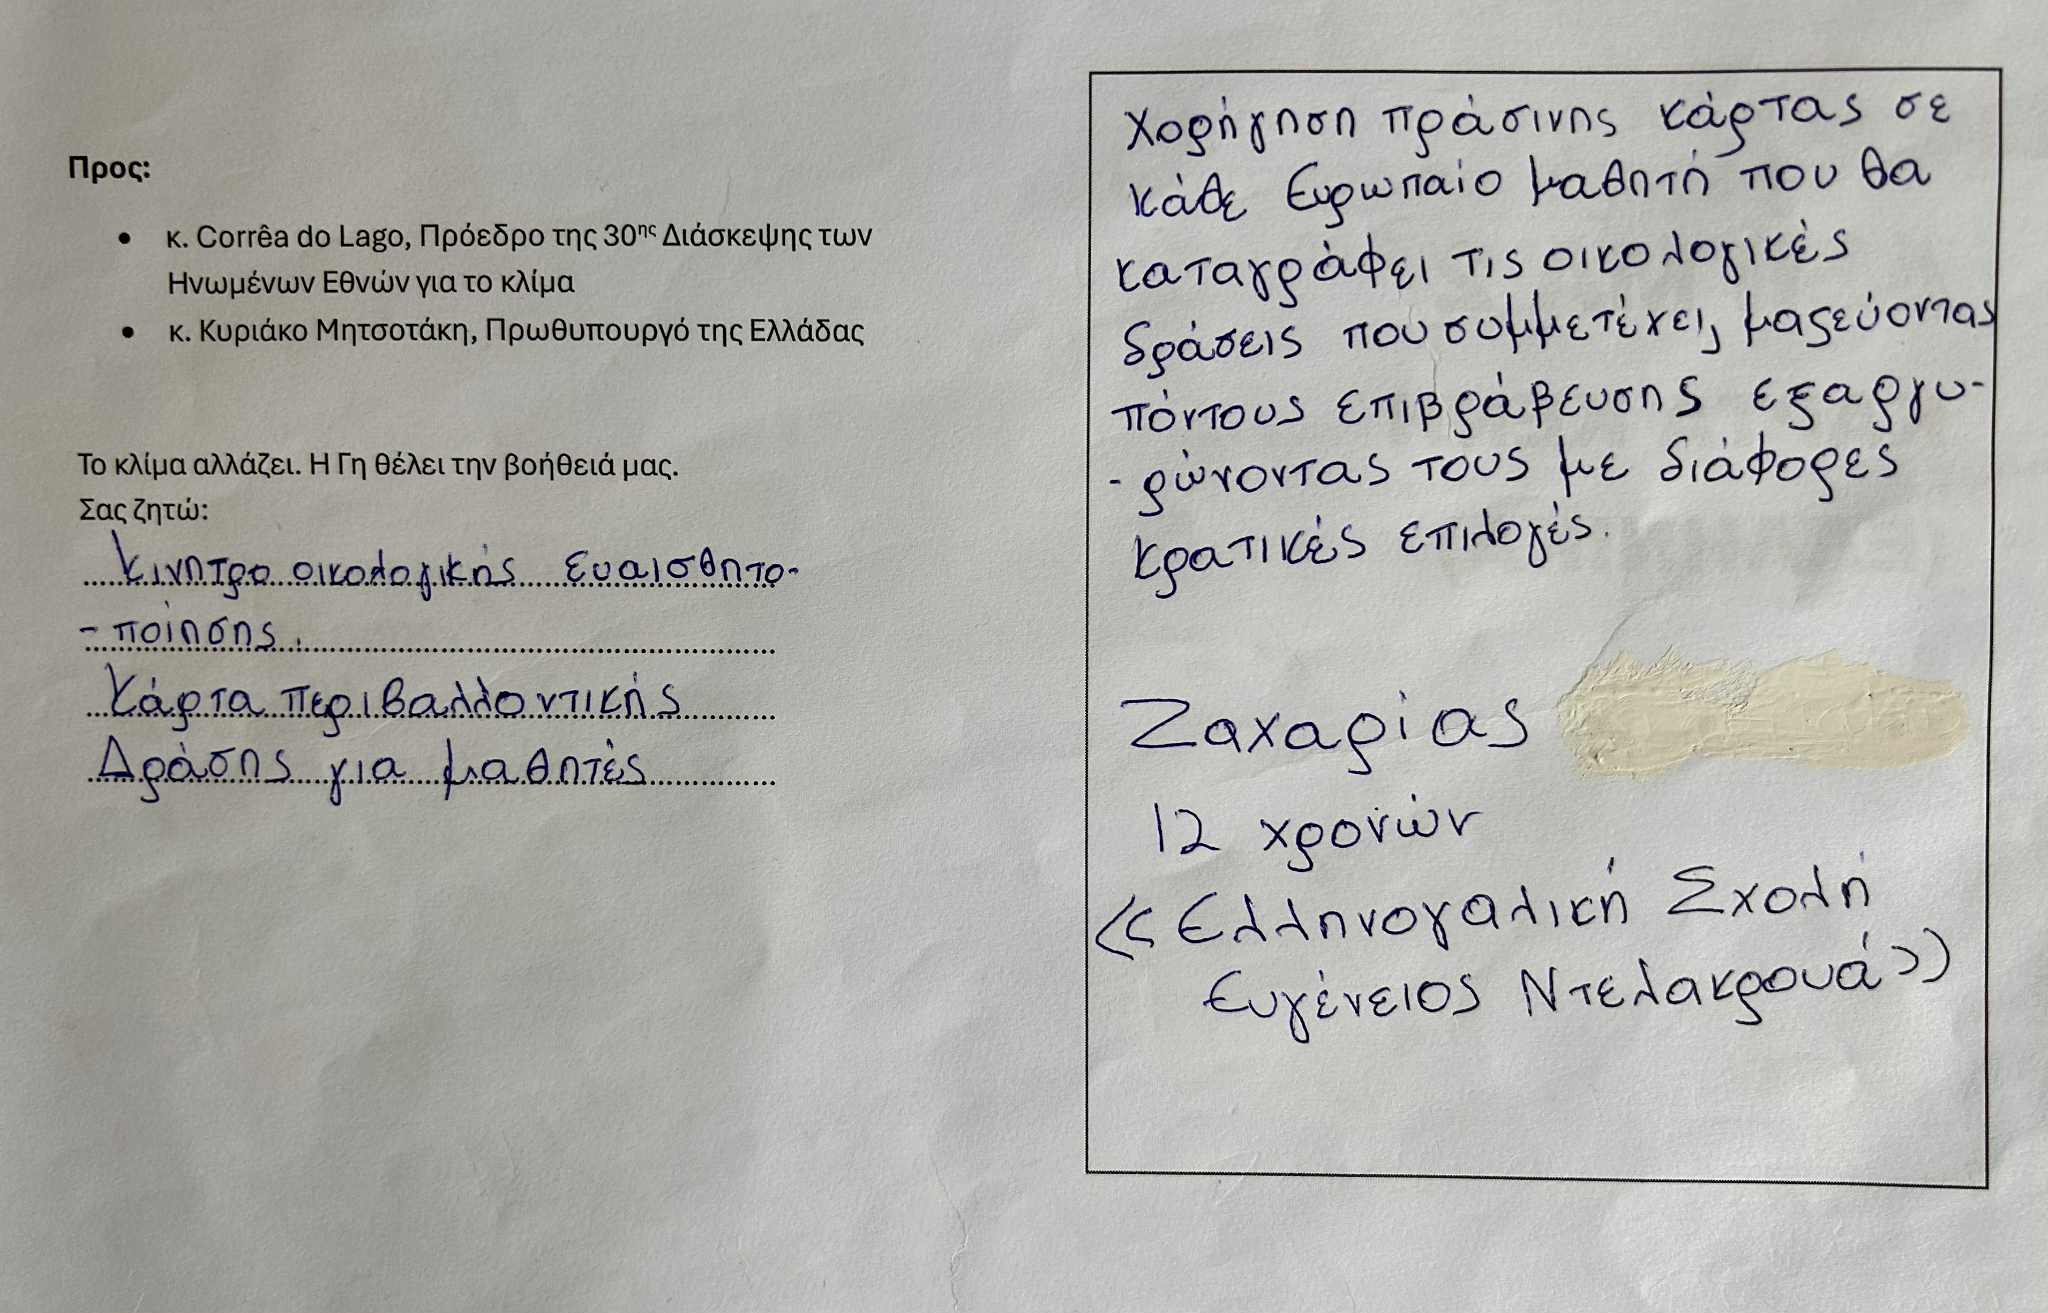 Προς:
• κ. Corrêa do Lago, Πρόεδρο της 30ης Διάσκεψης των
Ηνωμένων Εθνών για το κλίμα
• κ. Κυριάκο Μητσοτάκη, Πρωθυπουργό της Ελλάδας
Το κλίμα αλλάζει. Η Γη θέλει την βοήθειά μας.
Σας ζητώ:
Κινητρο οικολογικής ευαισθητο-
-ποίησης.
Κάρτα περιβαλλοντικής
Δράσης για μαθητές
Χορήγηση πράσινης κάρτας σε
κάθε Ευρωπαίο μαθητή που θα
καταγράφει τις οικολογικές
δράσεις που συμμετέχει, μαζεύοντας
πόντους επιβράβευσης εξαργυ-
-ρώνοντας τους με διάφορες
κρατικές επιλογές.
Ζαχαρίας
12 χρονών
«Ελληνογαλική Σχολή
Ευγένειος Ντελακρουά»